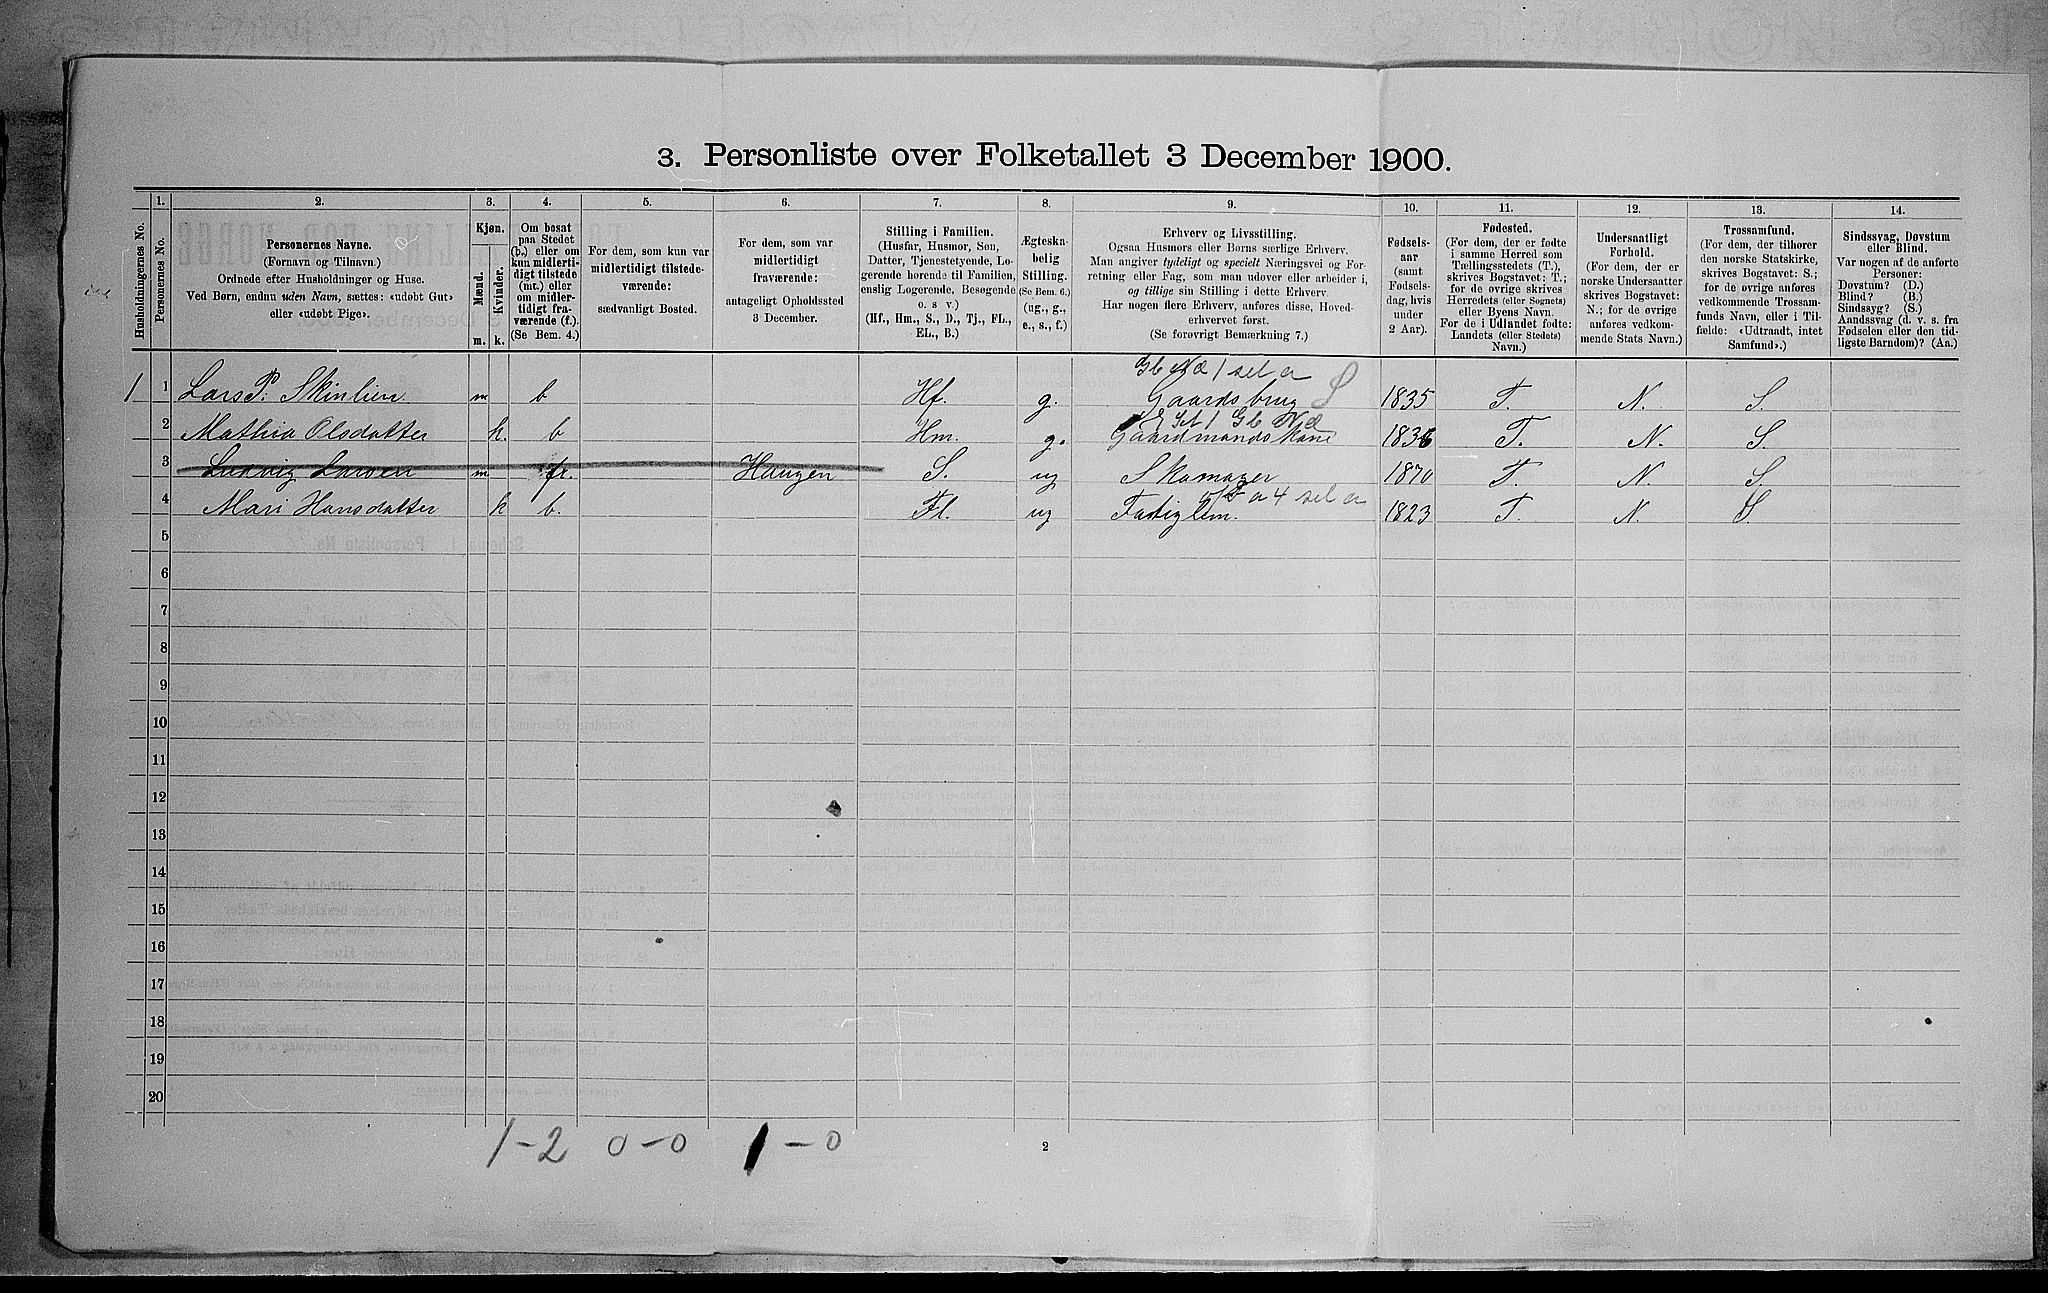 3. Personliste over Folketallet 3 December 1900.
Husholdningernes No.
1.
Personernes No.
2.
Personernes Navne.
(Fornavn og Tilnavn.)
Ordnede efter Husholdninger og Huse.
Ved Børn, endnu uden Navn, sættes: «udøbt Gut»
eller «udøbt Pige».
3.
Kjøn.
Mænd.
Kvinder.
m.
k.
4.
Om bosat
paa Stedet
(b.) eller om
kun midlerti-
digt tilstede
(mt.) eller
om midler-
tidigt fra-
værende (f.).
(Se Bem. 4.)
5.
For dem, som kun var
midlertidigt tilstede-
værende:
sædvanligt Bosted.
6.
For dem, som var
midlertidigt
fraværende:
antageligt Opholdssted
3 December.
7.
Stilling i Familien.
(Husfar, Husmor, Søn,
Datter, Tjenestetyende, Lo-
gerende hørende til Familien,
enslig Logerende, Besøgende
o. s. v.)
(Hf., Hm., S., D., Tj., FL.,
EL., B.)
8.
Ægteska-
belig
Stilling.
(Se Bem. 6.)
(ug., g.,
e., s., f.)
9.
Erhverv og Livsstilling.
Ogsaa Husmors eller Børns særlige Erhverv.
Man angiver tydeligt og specielt Næringsvei og For-
retning eller Fag, som man udover eller arbeider i,
og tillige sin Stilling i dette Erhverv.
Har nogen flere Erhverv, anføres disse, Hoved-
erhvervet først.
(Se forøvrigt Bemærkning 7.)
10.
Fødsels-
aar
(samt
Fødsels-
dag, hvis
under
2 Aar).
11.
Fødested.
(For dem, der er fødte
i samme Herred som
Tællingsstedets (T.),
skrives Bogstavet: T.;
for de øvrige skrives
Herredets (eller Sognets)
eller Byens Navn.
For de i Udlandet fødte:
Landets (eller Stedets)
Navn.)
12.
Undersaatligt
Forhold.
(For dem, der er
norske Undersaatter
skrives Bogstavet:
N.; for de øvrige
anføres vedkom-
mende Stats Navn.)
13.
Trossamfund.
(For dem, der tilhører
den norske Statskirke,
skrives Bogstavet: S.;
for de øvrige anføres
vedkommende Trossam-
funds Navn, eller i Til-
fælde: «Udtraadt, intet
Samfund».)
14.
Sindssvag, Døvstum
eller Blind.
Var nogen af de anførte
Personer:
Døvstum? (D.)
Blind? (B.)
Sindssyg? (S.)
Aandssvag (d. v. s. fra
Fødselen eller den tid-
ligste Barndom)? (Aa.)
1 sel
1 1 Lars P. Skinlien m b Hf. g. Gaardsbrug S 1835 T. N. S.
2 Mathia Olsdatter k. b Hm. g. Gaardmandskone 1836 T. N. S.
3 Ludvig Larsen m fr. Haugen S. ug Skomager 1870 T. N. S.
4 sel
4 Mari Hansdatter k b. Fl. ug Fattiglem. 1823 T. N. S.
5
6
7
8
9
10
11
12
13
14
15
16
17
18
19
20
1-2 0-0 1-0
2